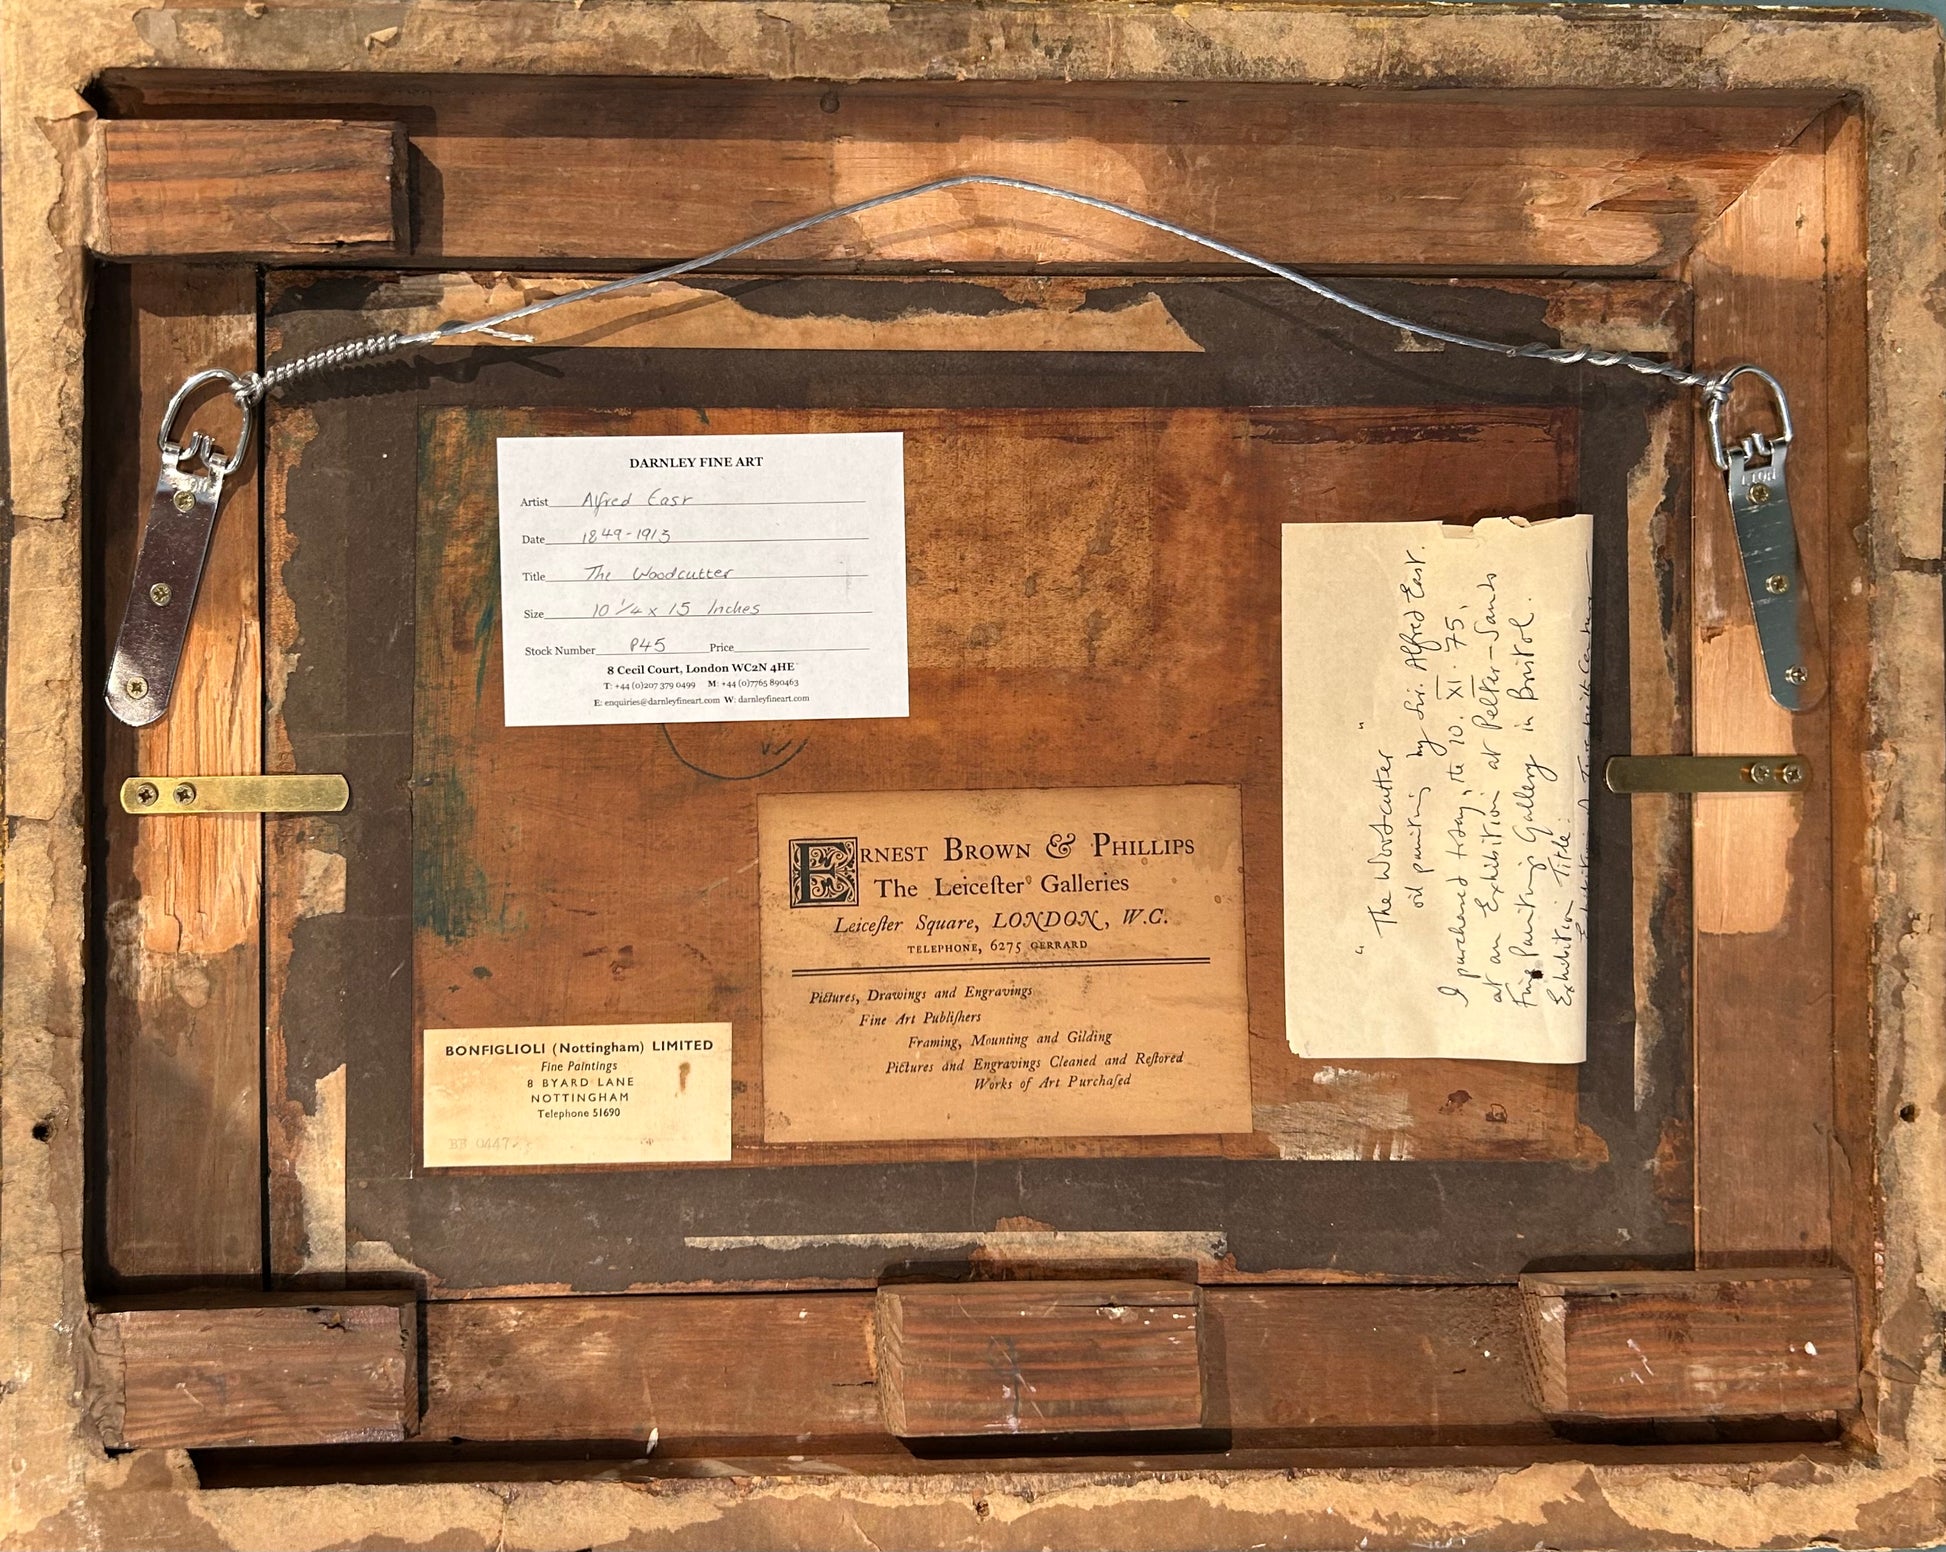 DARNLEY FINE ART
Artist Alfred East
Date 1849-1913
Title The Woodcutter
Size 10 1/4 x 15 Inches
Stock Number P45 Price
8 Cecil Court, London WC2N 4HE
T: +44 (0)207 379 0499 M: +44 (0)7765 890463
E: enquiries@darnleyfineart.com W: darnleyfineart.com
ERNEST BROWN & PHILLIPS
The Leicester Galleries
Leicester Square, LONDON, W.C.
TELEPHONE, 6275 GERRARD
Pictures, Drawings and Engravings
Fine Art Publishers
Framing, Mounting and Gilding
Pictures and Engravings Cleaned and Restored
Works of Art Purchased
BONFIGLIOLI (Nottingham) LIMITED
Fine Paintings
8 BYARD LANE
NOTTINGHAM
Telephone 51690
BB 0447
"The Woodcutter"
oil painting by Sir. Alfred East.
I purchased today, the 10. XI. 75,
at an Exhibition at Pelter-Sands
Fine Painting Gallery in Bristol.
Exhibition Title: